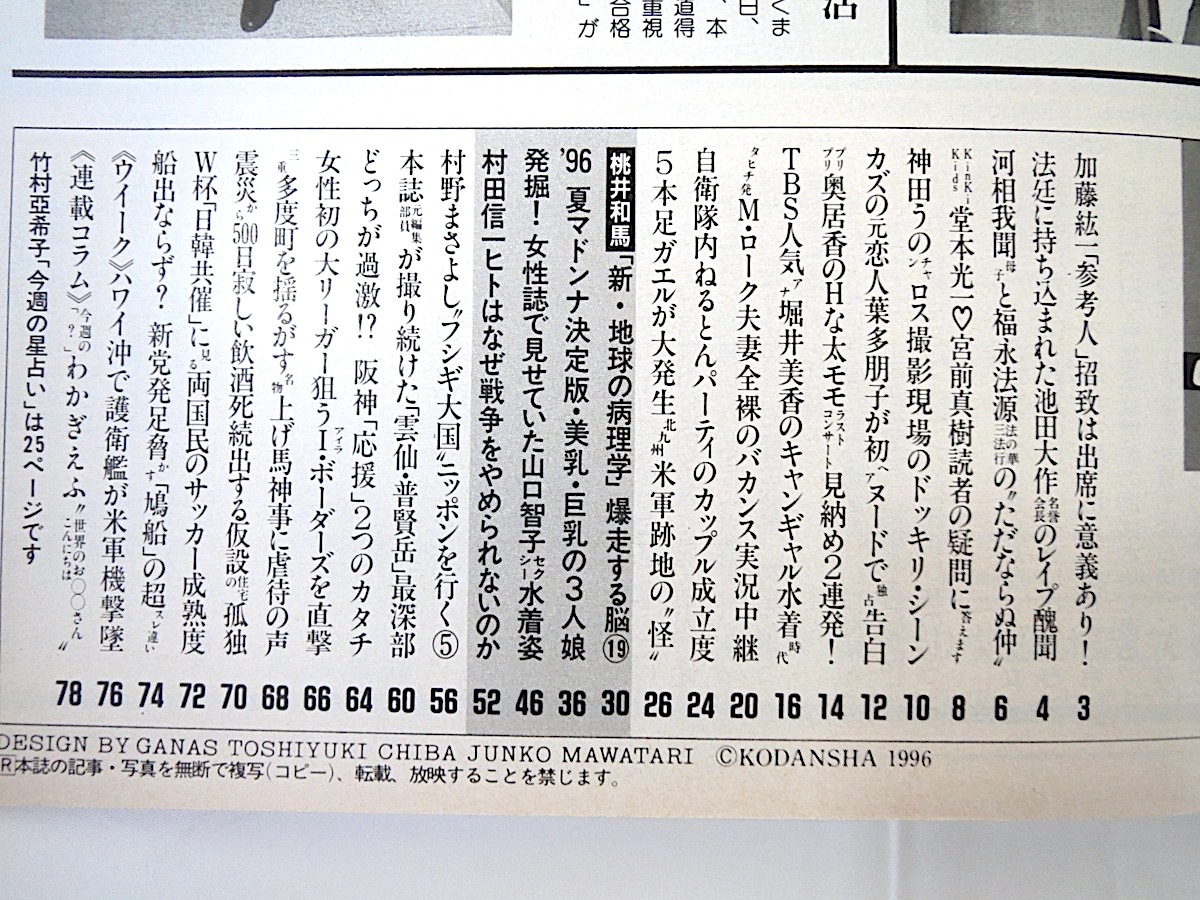 活
くま
日、
道得
、本
重視
合格
」が
加藤紘一「参考人」招致は出席に意義あり! 3
法廷に持ち込まれた池田大作名誉会長のレイプ醜聞 4
河相我聞母子と福永法源法の華三法行の〝ただならぬ仲〟 6
KinKi Kids堂本光一♡宮前真樹読者の疑問に答えます 8
神田うのンチャロス撮影現場のドッキリ・シーン 10
カズの元恋人葉多朋子が初ヘアヌードで独占告白 12
プリプリ奥居香のHな太モモラストコンサート見納め2連発! 14
TBS人気アナ堀井美香のキャンギャル水着時代 16
タヒチ発M・ローク夫妻全裸のバカンス実況中継 20
自衛隊内ねるとんパーティのカップル成立度 24
5本足ガエルが大発生北九州米軍跡地の〝怪〟 26
桃井和馬「新・地球の病理学」爆走する脳⑲ 30
'96 夏マドンナ決定版・美乳・巨乳の3人娘 36
発掘!女性誌で見せていた山口智子セクシー水着姿 46
村田信一ヒトはなぜ戦争をやめられないのか 52
村野まさよし〝フシギ大国〟ニッポンを行く⑤ 56
本誌元編集部員が撮り続けた「雲仙・普賢岳」最深部 60
どっちが過激!? 阪神「応援」2つのカタチ 64
女性初の大リーガー狙うI・ボーダーズアイラを直撃 66
三重多度町を揺るがす名物上げ馬神事に虐待の声 68
震災から500日寂しい飲酒死続出する仮設住宅の孤独 70
W杯「日韓共催」に見る両国民のサッカー成熟度 72
船出ならず? 新党発足脅かす「鳩船」の超スレ違い 74
《ウイーク》ハワイ沖で護衛艦が米軍機撃墜 76
《連載コラム》今週の「?」わかぎえふ〝世界のお〇〇さんこんにちは〟 78
竹村亞希子「今週の星占い」は25ページです
DESIGN BY GANAS TOSHIYUKI CHIBA JUNKO MAWATARI ©KODANSHA 1996
R本誌の記事・写真を無断で複写(コピー)、転載、放映することを禁じます。